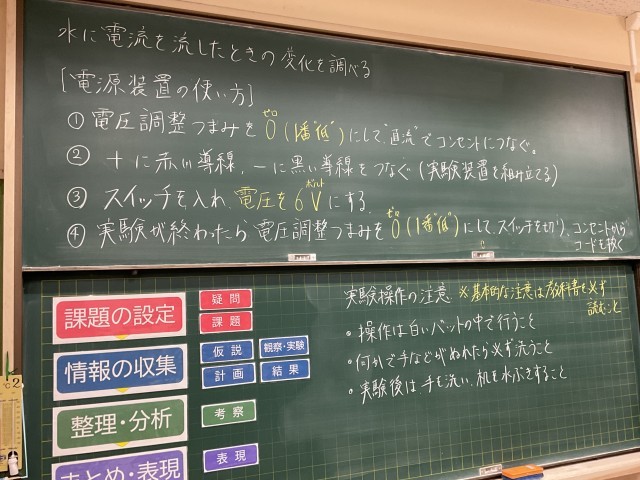 水に電流を流したときの変化を調べる
[電源装置の使い方]
① 電圧調整つまみを0(1番"低")にして"直流"でコンセントにつなぐ。
ゼロ
② +に赤い導線、-に黒い導線をつなぐ(実験装置を組み立てる)
③ スイッチを入れ、電圧を6Vにする
ボルト
④ 実験が終わったら電圧調整つまみを0(1番"低")にして、スイッチを切り、コンセントから
ゼロ
コードを抜く
課題の設定
疑問
課題
情報の収集
仮説
観察・実験
計画
結果
整理・分析
考察
まとめ・表現
表現
実験操作の注意 ※基本的な注意は教科書を必ず
読むこと
・操作は白いバットの中で行うこと
・何かで手などがぬれたら必ず洗うこと
・実験後は、手を洗い、机を水ぶきすること
℃
2